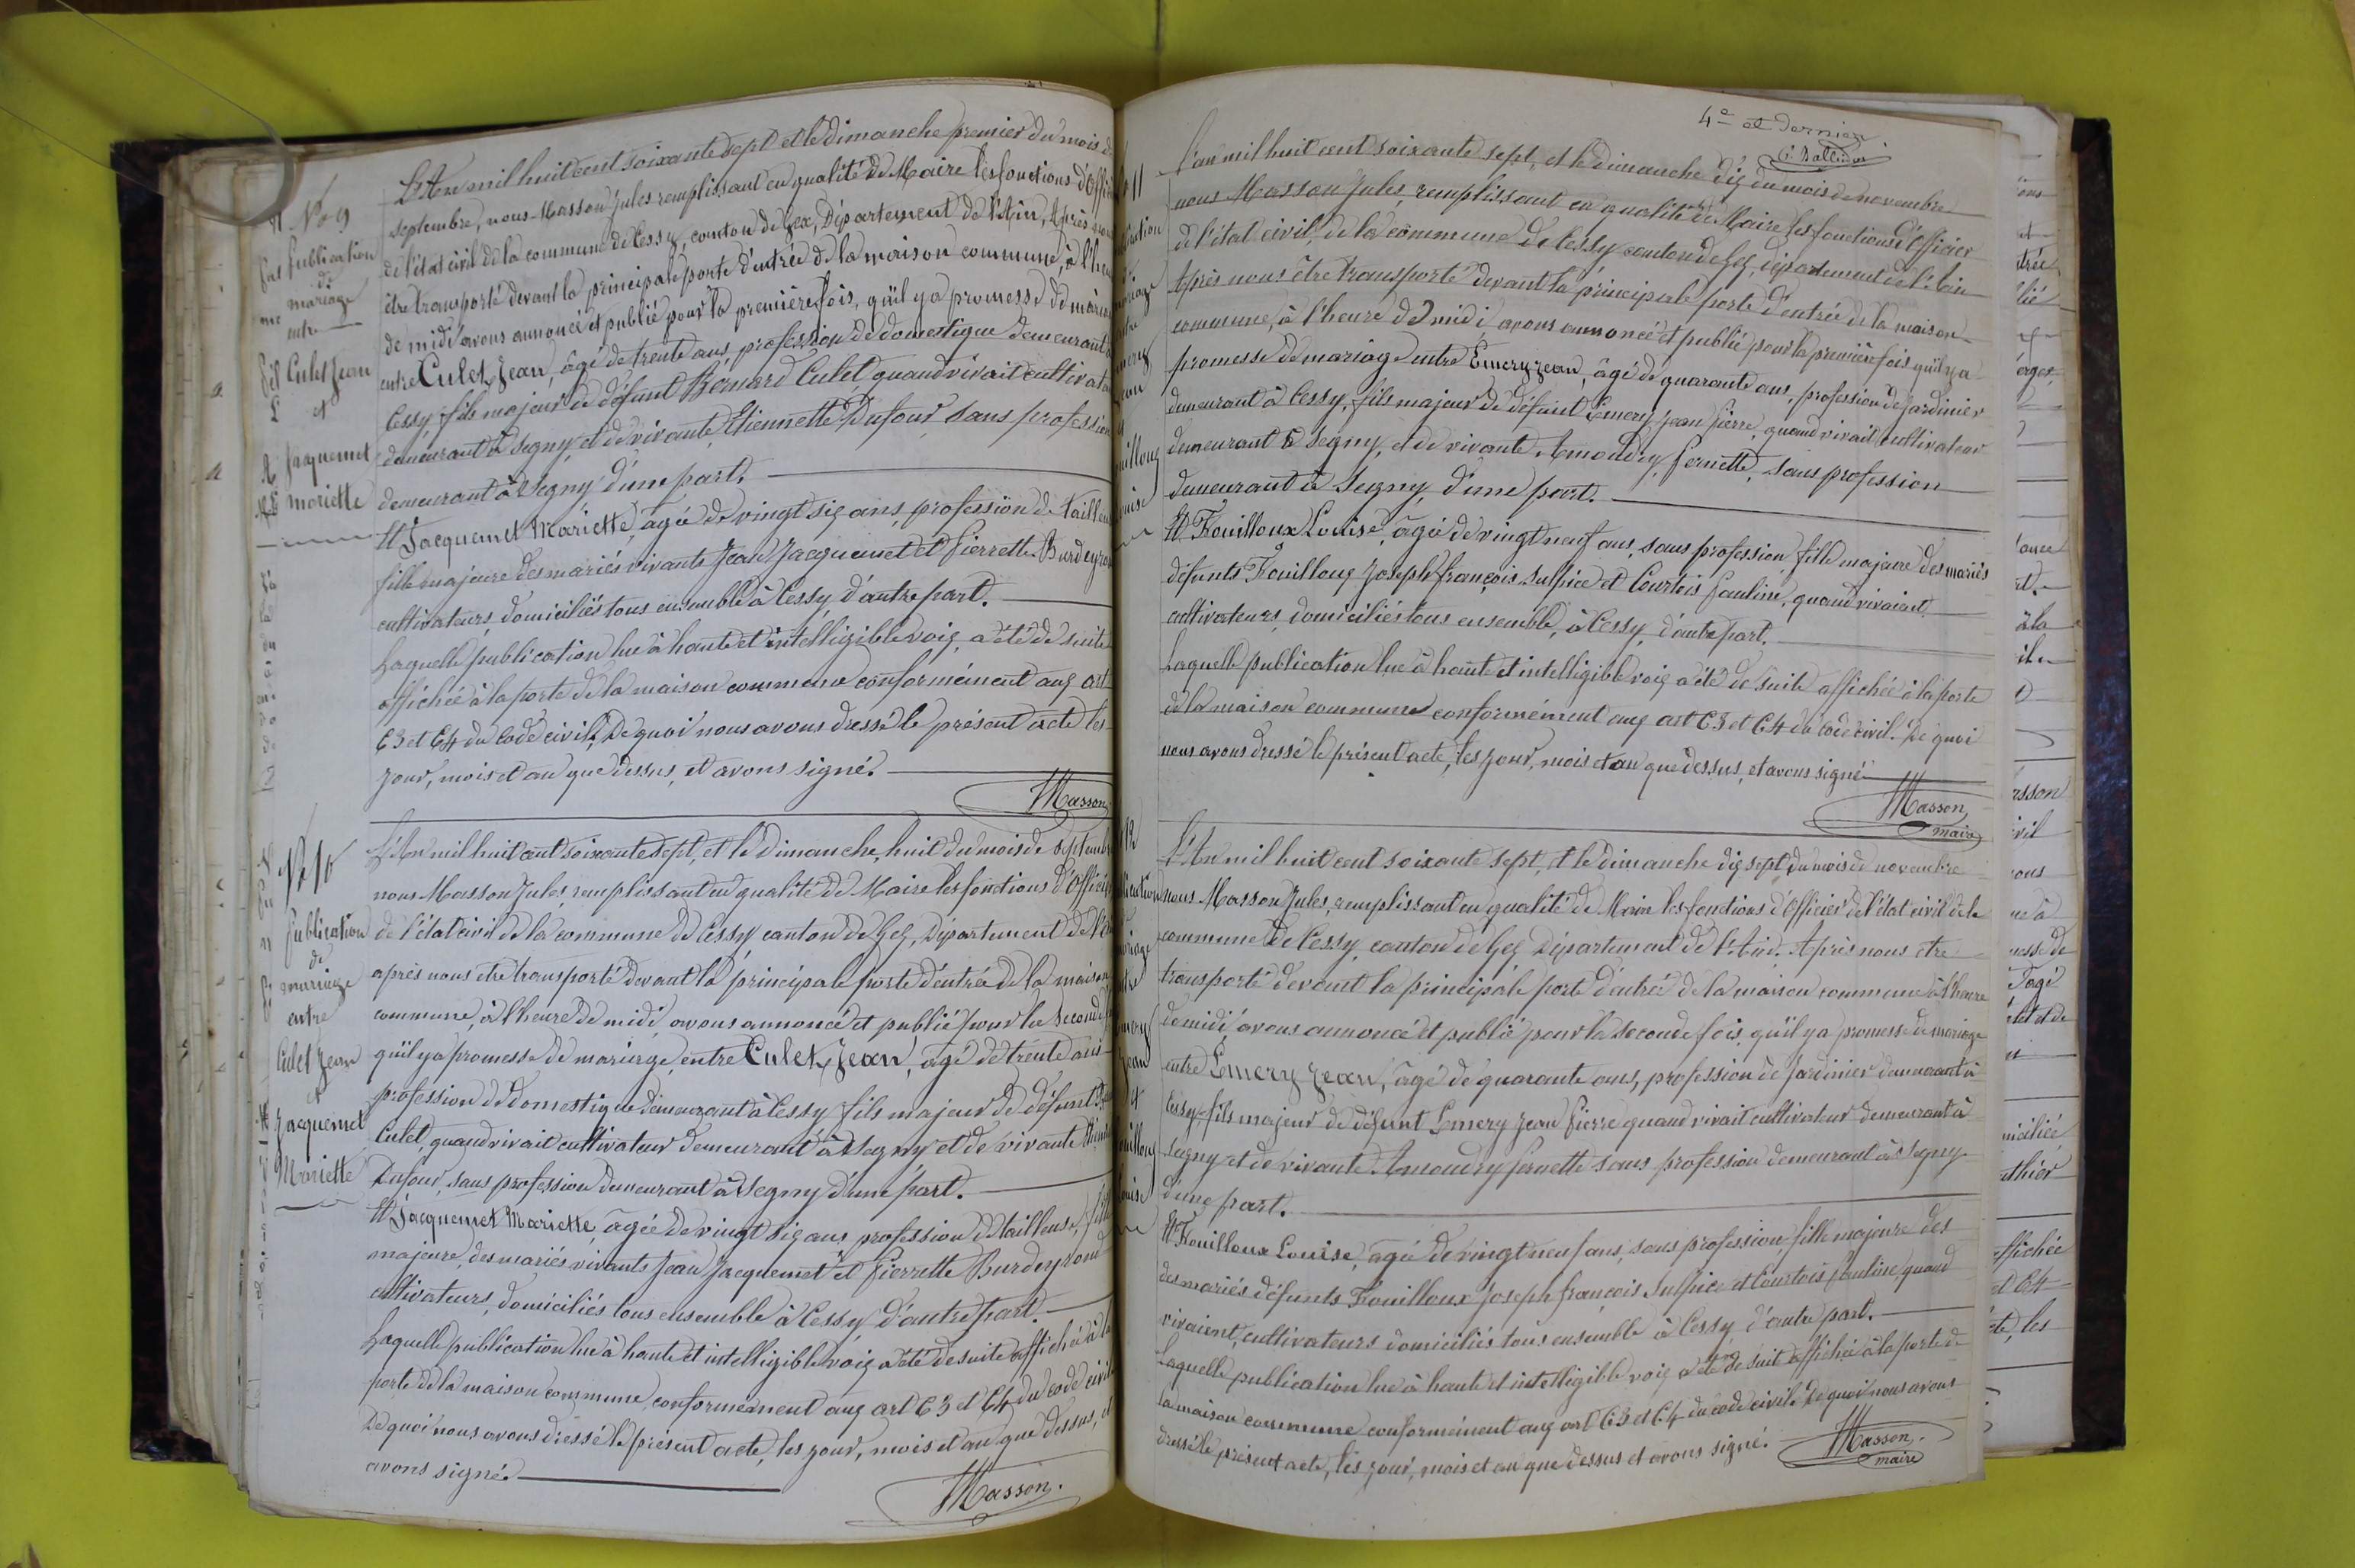 N° 9
Publication
de
mariage
entre
Culet Jean
et
Jacquemet
mariette
L'An mil huit cent soixante sept et le dimanche premier du mois d
septembre, nous Masson Jules remplissant en qualité de Maire les fonctions d'Offi
de l'état civil de la commune de Cessy, canton de Gex, Département de l'Ain, Après nous
être transporté devant la principale porte d'entrée de la maison commune, à l'heu
de midi avons annoncé et publié pour la première fois, qu'il y a promesse de maria
entre Culet Jean, âgé de trente ans, profession de domestique demeurant à
Cessy, fils majeur de défunt Bernard Culet, quand vivait cultivateu
demeurant à Segny, et de vivante Etiennette Dufour sans profession
demeurant à Segny d'une part.
Et Jacquemet Mariette, âgée de vingt six ans, profession de tailleu
fille majeure des mariés vivants Jean Jacquemet et Pierrette Burdeyron
cultivateurs, domiciliés tous ensemble à Cessy, d'autre part.
Laquelle publication lue à haute et intelligible voix, a été de suite
affichée à la porte de la maison commune conformément aux art
63 et 64 du Code civil. De quoi nous avons dressé le présent acte les
jour, mois et an que dessus, et avons signé.
Masson
N° 10
Publication
de
mariage
entre
Culet Jean
et
Jacquemet
Mariette
L'An mil huit cent soixante sept, et le Dimanche, huit du mois de septemb
nous Masson Jules, remplissant en qualité de Maire les fonctions d'Officie
de l'état civil de la commune de Cessy canton de Gex, Département de l'
après nous être transporté devant la principale porte d'entrée de la maison
commune, à l'heure de midi avons annoncé et publié pour la seconde
qu'il y a promesse de mariage, entre Culet Jean, âgé de trente ans
profession de domestique demeurant à Cessy fils majeur de défunt
Culet, quand vivait cultivateur demeurant à Segny et de vivante
Dufour, sans profession demeurant à Segny d'une part.
Et Jacquemet Mariette, âgée de vingt six ans profession de tailleuse, fille
majeure, des mariés vivants Jean Jacquemet et Pierrette Burdeyrond
cultivateurs, domiciliés tous ensemble à Cessy d'autre part.
Laquelle publication lue à haute et intelligible voix a été de suite affichée à la
porte de la maison commune, conformément aux art 63 et 64 du code civil
De quoi nous avons dressé le présent acte, les jour, mois et an que dessus, et
avons signé.
Masson.
4e et dernier
11
L'an mil huit cent soixante sept, et le dimanche dix du mois de novembre
nous Masson Jules, remplissant en qualité de Maire les fonctions d'Officier
de l'état civil, de la commune de Cessy canton de Gex, département de l'Ain
Après nous être transporté devant la principale porte d'entrée de la maison
commune, à l'heure de midi, avons annoncé et publié pour la première fois qu'il y a
promesse de mariage entre Emery Jean, âgé de quarante ans, profession de Jardinier
demeurant à Cessy, fils majeur de défunt Emery Jean Pierre, quand vivait cultivateur
demeurant à Segny, et de vivante Amoudry Pernette, sans profession
demeurant à Segny, d'une part.
Et Fouilloux Louise, âgée de vingt neuf ans, sans profession fille majeure des mariés
défunts Fouilloux Joseph françois Sulpice et Courtois Pauline, quand vivaient
cultivateurs, domiciliés tous ensemble, à Cessy, d'autre part.
Laquelle publication lue à haute et intelligible voix a été de suite affichée à la porte
de la maison commune conformément aux art 63 et 64 du code civil. De quoi
nous avons dressé le présent acte, les jour, mois et an que dessus, et avons signé
Masson
maire
12
L'An mil huit cent soixante sept, et le dimanche dix sept du mois de novembre
nous Masson Jules, remplissant en qualité de Maire les fonctions d'Officier de l'état civil de la
commune de Cessy, canton de Gex Département de l'Ain. Après nous être
transporté devant la principale porte d'entrée de la maison commune à l'heure
de midi, avons annoncé et publié pour la seconde fois, qu'il y a promesse de mariage
entre Emery Jean, âgé de quarante ans, profession de Jardinier demeurant à
Cessy, fils majeur de défunt Emery Jean Pierre quand vivait cultivateur demeurant à
Segny et de vivante Amoudry Pernette sans profession demeurant à Segny
d'une part.
Et Fouilloux Louise, âgée de vingt neuf ans, sans profession, fille majeure des
des mariés défunts Fouilloux Joseph françois Sulpice et Courtois Pauline, quand
vivaient, cultivateurs domiciliés tous ensemble à Cessy d'autre part.
Laquelle publication lue à haute et intelligible voix a été de suite affichée à la porte de
la maison commune conformément aux art 63 et 64 du code civil. De quoi nous avons
dressé le présent acte, les jour, mois et an que dessus et avons signé.
Masson.
maire